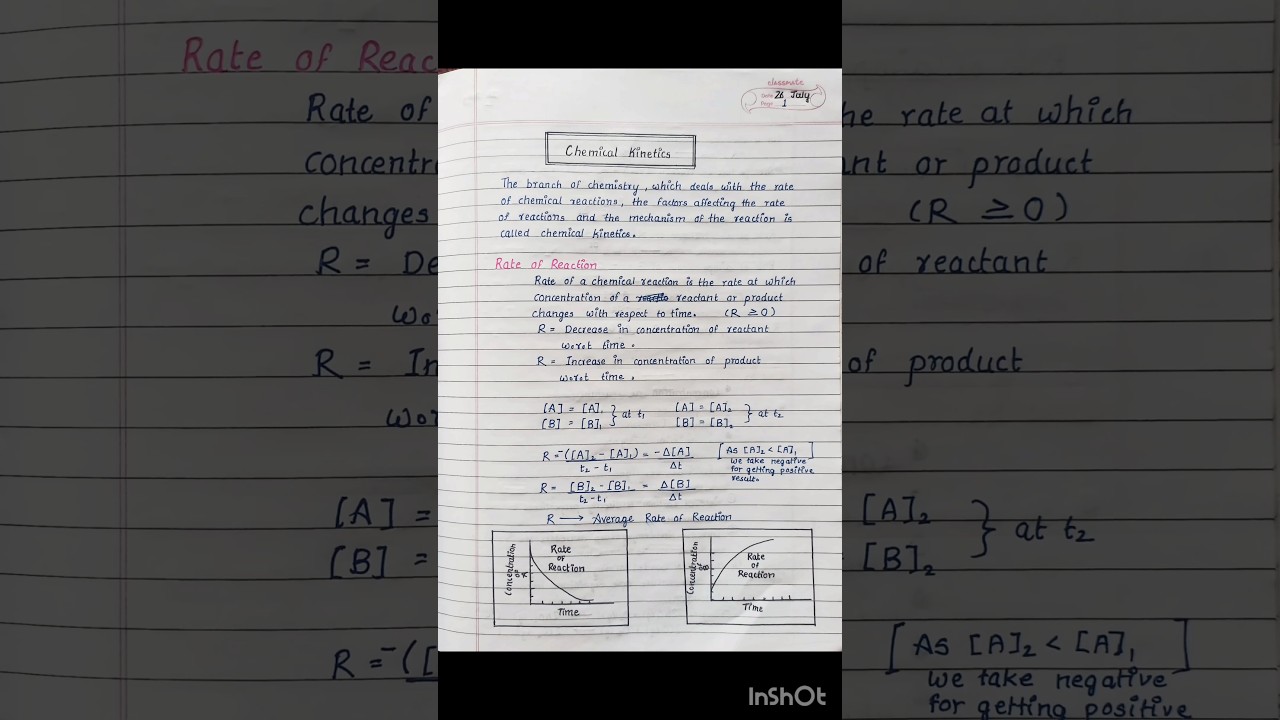 classmate
Date 26 July
Page 1
Chemical Kinetics
The branch of chemistry, which deals with the rate
of chemical reactions, the factors affecting the rate
of reactions and the mechanism of the reaction is
called chemical kinetics.
Rate of Reaction
Rate of a chemical reaction is the rate at which
concentration of a reactant or product
changes with respect to time. (R ≥ 0)
R = Decrease in concentration of reactant
w.r.t time.
R = Increase in concentration of product
w.r.t time.
[A] = [A]₁ } at t₁ [A] = [A]₂ } at t₂
[B] = [B]₁ [B] = [B]₂
R = -([A]₂ - [A]₁) / t₂ - t₁ = -Δ[A] / Δt [As [A]₂ < [A]₁
we take negative
for getting positive
result.]
R = [B]₂ - [B]₁ / t₂ - t₁ = Δ[B] / Δt
R → Average Rate of Reaction
Concentration of A
Rate of Reaction
Time
Concentration of B
Rate of Reaction
Time
Rate of Reac
Rate of
concentr
changes
R = De
wo
R = In
wor
[A] =
[B] =
R = -([
he rate at which
nt or product
(R ≥ 0)
of reactant
of product
[A]₂ } at t₂
[B]₂
[As [A]₂ < [A]₁]
we take negative
for getting positive
InShOt